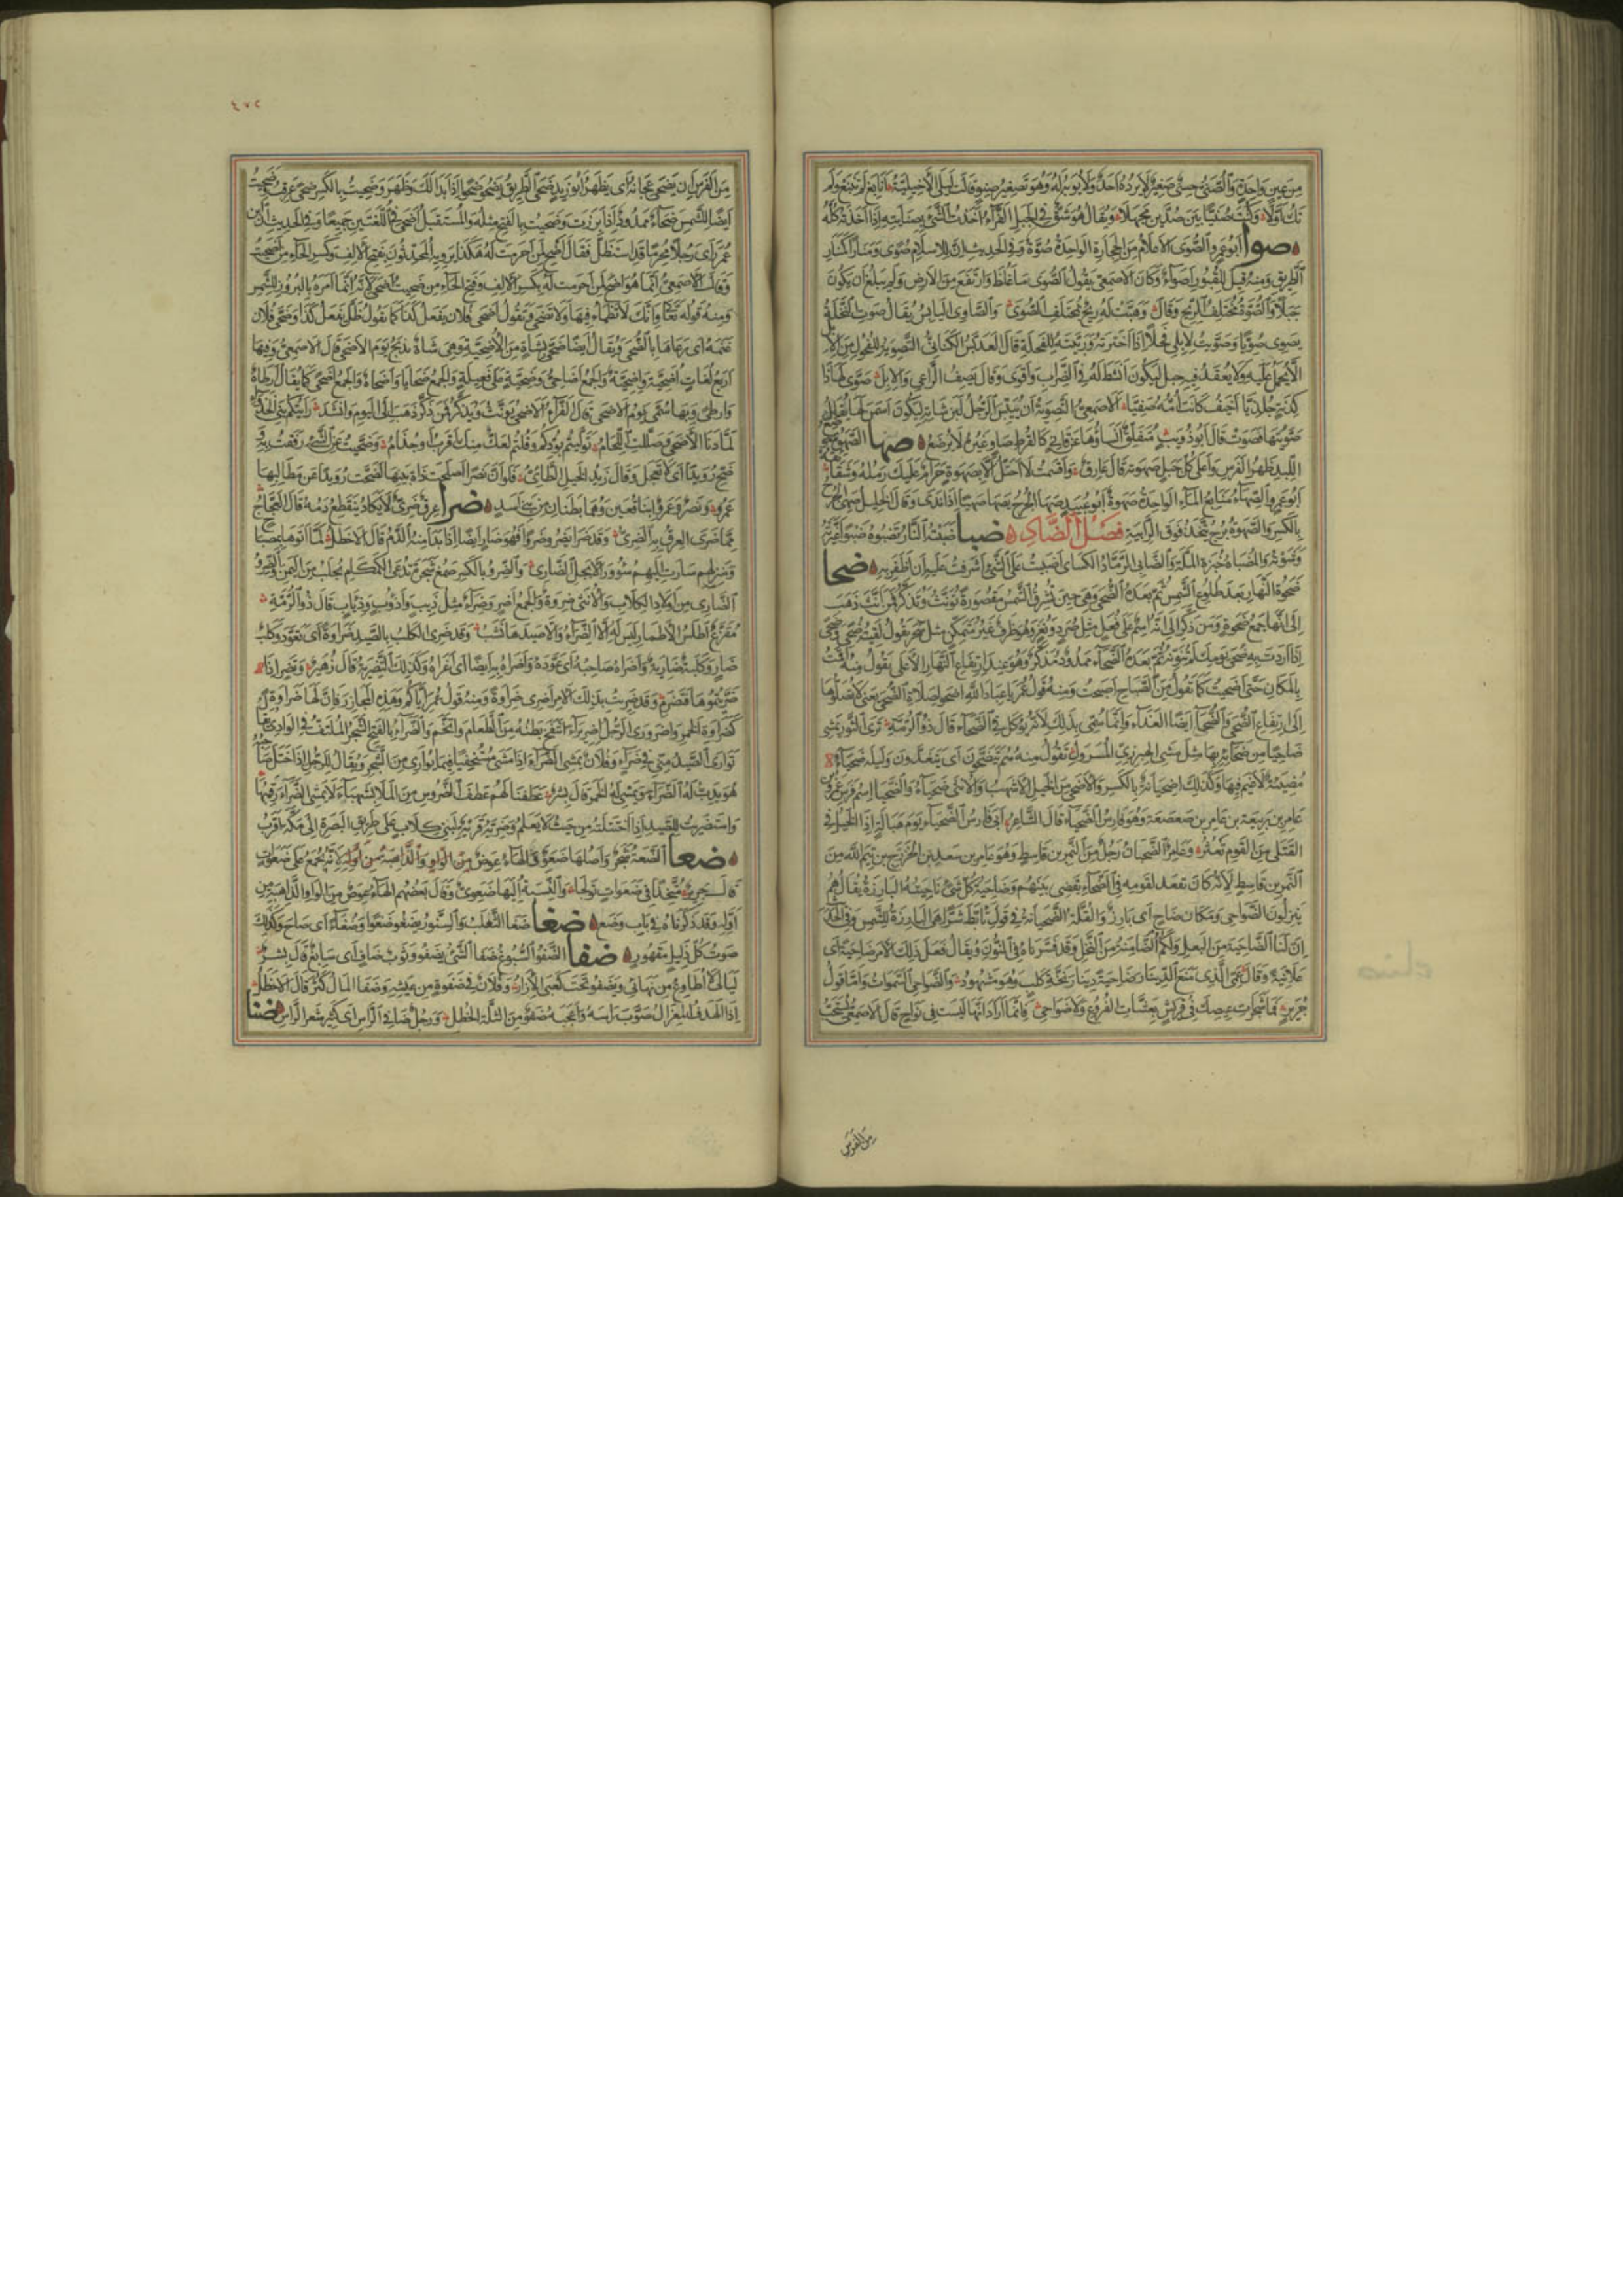 من عين واحدة والصنى حسى صغير لا يرده احد ولا يوبه له وهو تصغير صنو قالت ليلى الاخيلية انابغ لم تنبغ ولم
تك اولا وكنت صنيا بين صدين مجهلا ويقال هو شق فى الجبل الفراء اخذت الشئ بصنايته اذا اخذته كله
صوا ابو عمرو الصوى الاعلام من الحجارة الواحدة صوة وفى الحديث ان للاسلام صوى ومنارا كمنار
الطريق ومنه قيل للقبور اصواء وكان الاصمعى يقول الصوى ما غلظ وارتفع من الارض ولم يبلغ ان يكون
جبلا والصوة مختلف الريح وقال وهبت له ريح بمختلف الصوى والصاوى اليابس يقال صوت النخلة
تصوى صويا وصويت لابلى فحلا اذا اخترته وربيته للفحلة قال العدبس الكنانى التصوية للفحول من الابل
الا يحمل عليه ولا يعقد فيه حبل ليكون انشط له فى الضراب واقوى وقال يصف الراعى والابل صوى لها ذا
كدنة جلذيا اخيف كانت امه صفيا الاصمعى التصوية ان تيبس الرجل لبن شاته ليكون اسمن لها يقال
صويتها فصوت قال ابو ذؤيب متفلق انساؤها عن قانئ كالقرط صاو غبره لا يرضع صها الصهوة موضع
اللبد من ظهر الفرس واعلى كل جبل صهوته قال عارق واقسمت لا احتل الا بصهوة حرام عليك رمله وشقائقه
ابو عمرو الصهاء منابع الماء الواحدة صهوة ابو عبيد صها الجرح يصها صهيا اذا ندى وقال الخليل صهى الجرح
بالكسر والصهوة برج يتخذ فوق الرابية فصل الضاد ضبا ضبته النار تضبوه ضبوا غيرته
وشوته والمضباة خبزة الملة والضابى الرماد الكسائى اضبيت على الشئ اشرفت عليه ان اظفر به ضحا
ضحوة النهار بعد طلوع الشمس ثم بعده الضحى وهى حين تشرق الشمس مقصورة تؤنث وتذكر فمن انث ذهب
الى انها جمع ضحوة ومن ذكر الى انه اسم على فعل مثل صرد ونغر وهو ظرف غير متمكن مثل سحر تقول لقيته ضحى وضحى
اذا اردت به ضحى يومك لم تنونه ثم بعده الضحاء ممدود مذكر وهو عند ارتفاع النهار الاعلى يقول منه اقمت
بالمكان حتى اضحيت كما تقول من الصباح اصبحت ومنه قول عمر يا عباد الله اضحوا بصلاة الضحى يعنى لا تصلوها
الى ارتفاع الضحى والضحاء ايضا الغداء وانما سمى بذلك لانه يؤكل فى الضحاء قال ذو الرمة ترى الثور يمشى
ضاحيا من ضحائه بها مثل مشى الهبرزى المسرول تقول منه هم يتضحون اى يتغدون وليلة ضحياء
مضيئة لا غيم فيها وكذلك اضحيانة بالكسر والاضحى من الخيل الاشهب والانثى ضحياء والضحيا اسم فرس عمرو
عامر بن ربيعة بن عامر بن صعصعة وهو فارس الضحياء قال الشاعر ابى فارس الضحياء يوم هبالة اذا الخيل فى
القتلى من القوم تعثر وعامر الضحيان رجل من النمر بن قاسط وهو عامر بن سعد بن الخزرج بن تيم الله من
النمر بن قاسط لانه كان يقعد لقومه فى الضحاء يقضى بينهم وضاحية كل شئ ناحيته البارزة يقال هم
ينزلون الضواحى ومكان ضاح اى بارز والقلة الضحيانة فى قول تابط شرا هى البارزة للشمس وفى الحديث
ان لنا الضاحية من البعل ولكم الضامنة من النخل وقد فسرناه فى النون ويقال فعل ذلك الامر ضاحية اى
علانية وقال عمى الذى منع الدينار ضاحية دينار نخة كلب وهو مشهود والضواحى السموات واما قول
جرير فما شجرات عيصك فى قريش بعشات الفروع ولا ضواحى فانما اراد انها ليست فى نواح قال الاصمعى يستحب
من الفرس
٤٧٢
من الفرس ان يضحى عجانه اى يظهر ابو زيد ضحى الطريق يضحو ضحوا اذا بدا لك وظهر وضحيت بالكسر ضحى عرقت ضحيت
ايضا للشمس ضحاء ممدود اذا برزت وضحيت بالفتح مثله والمستقبل اضحى فى اللغتين جميعا وفى الحديث ان ابن
عمر راى رجلا محرما قد استظل فقال اضح لمن احرمت له هكذا يرويه المحدثون بفتح الالف وكسر الحاء من اضحيت
وقال الاصمعى انما هو اضح لمن احرمت له بكسر الالف وفتح الحاء من ضحيت اضحى لانه انما امره بالبروز للشمس
ومنه قوله تعا وانك لا تظما فيها ولا تضحى وتقول اضحى فلان يفعل كذا كما تقول ظل يفعل كذا وضحى فلان
غنمه اى رعاها بالضحى ويقال ايضا ضحى بشاة من الاضحية وهى شاة تذبح يوم الاضحى قال الاصمعى وفيها
اربع لغات اضحية واضحية والجمع اضاحى وضحية على فعيلة والجمع ضحايا واضحاة والجمع اضحى كما يقال ارطاة
وارطى وبها سمى يوم الاضحى قال الفراء الاضحى يؤنث ويذكر فمن ذكر ذهب الى اليوم وانشد رايتكم بنى الخذواء
لما دنا الاضحى وصللت اللحام توليتم بودكم وقلتم لعك منك اقرب او جذام وضحيت عن الشئ رفقت به
ضح رويدا اى لا تعجل وقال زيد الخيل الطائى فلو ان نصرا اصلحت ذات بينها لضحت رويدا عن مطالبها
عمرو ونصر وعمرو ابنا قعين وهما بطنان من بنى اسد ضرا عرق ضرى لا يكاد ينقطع دمه قال العجاج
مما ضرى العرق به الضرى وقد ضرا يضرو ضروا فهو ضار ايضا اذا بدا منه الدم قال الاخطل لما اتوها بمصباح
ومبزلهم سارت اليهم سؤور الابجل الضارى والضرو بالكسر صمغ شجرة تدعى الكمكام تجلب من اليمن والضرو
الضارى من اولاد الكلاب والانثى ضروة والجمع اضر وضراء مثل ذيب واذؤب وذياب قال ذو الرمة
مقزع اطلس الاطمار ليس له الا الضراء والا صيدها نشب وقد ضرى الكلب بالصيد ضراوة اى تعود وكلب
ضار وكلبة ضارية واضراه صاحبه اى عوده واضراه به ايضا اى اغراه وكذلك التضرية قال زهير وتضر اذا
ضريتموها فتضرم وقد ضريت بذلك الامر اضرى ضراوة ومنه قول عمر اياكم وهذه المجازر فان لها ضراوة
كضراوة الخمر واضرورى الرجل اضريراء انتفخ بطنه من الطعام واتخم والضراء بالفتح الشجر الملتف فى الوادى يقال
توارى الصيد منى فى ضراء وفلان يمشى الضراء اذا مشى مستخفيا فيما يوارى من الشجر ويقال للرجل اذا ختل صاحبه
هو يدب له الضراء ويمشى له الخمر قال بشر عطفنا لهم عطف الضروس من الملا بشهباء لا يمشى الضراء رقيبها
واستضريت للصيد اذا ختلته من حيث لا يعلم وضرية قرية لبنى كلاب على طريق البصرة الى مكة اقرب
ضعا الضعة شجر واصلها ضعوة والهاء عوض من الواو والذاهبة من اوله لانه يجمع على ضعوات
قال جرير متخذا فى ضعوات تولجا والنسبة اليها ضعوى وقال بعضهم الهاء عوض من الواو الذاهبة من
اوله وقد ذكرناه فى باب وضع ضغا ضغا الثعلب والسنور يضغو ضغوا وضغاء اى صاح وكذلك
صوت كل ذليل مقهور ضفا الضفو السبوغ ضفا الشئ يضفو وثوب ضاف اى سابغ قال بشر
ليالى لا اطاوع من نهانى ويضفو تحت كعبى الازار وفلان فى ضفوة من عيشه وضفا المال كثر قال الاخطل
اذا الهدف المعزال صوب راسه واعجبه ضفو من الثلة الخطل ورجل ضافى الراس اى كثير شعر الراس ضنا